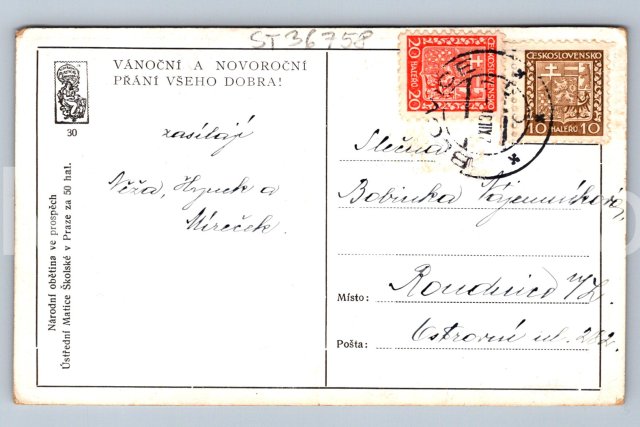 ST 36758
VÁNOČNÍ A NOVOROČNÍ
PŘÁNÍ VŠEHO DOBRA!
30
zasílají
Něža, Hynek a
Mireček.
Národní obětina ve prospěch
Ústřední Matice Školské v Praze za 50 hal.
20 HALÉŘŮ 20
ČESKOSLOVENSKO
ČESKOSLOVENSKO
10 HALÉŘŮ 10
XII.
Slečna
Bobinka
Místo: Roudnice n/L.
Pošta: Ostrovní ul. 282.